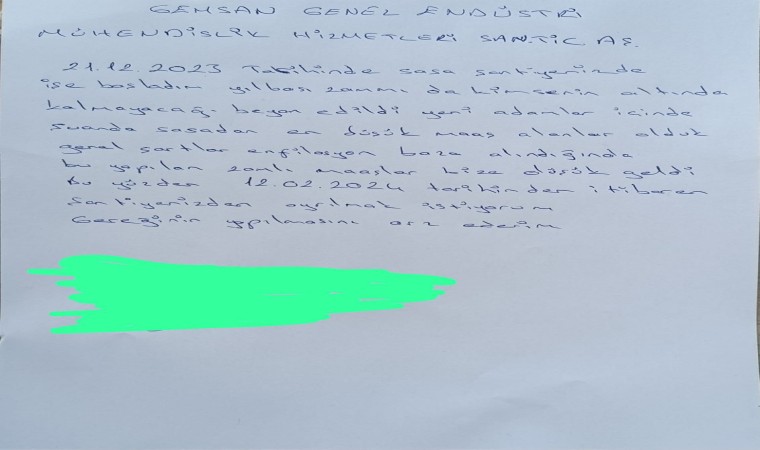 GEMSAN GENEL ENDÜSTRİ
MÜHENDİSLİK HİZMETLERİ SAN.TİC AŞ.
21.12.2023 Tarihinde sasa şantiyenizde
işe başladım yılbaşı zammı da kimsenin altında
kalmayacağı beyan edildi yeni adamlar içinde
Şuanda sasadan en düşük maaş alanlar olduk
genel şartlar enfilasyon baza alındığında
bu yapılan zamlı maaşlar bize düşük geldi
Bu yüzden 12.02.2024 tarihinden itibaren
Şantiyenizden ayrılmak istiyorum
Gereğinin yapılmasını arz ederim